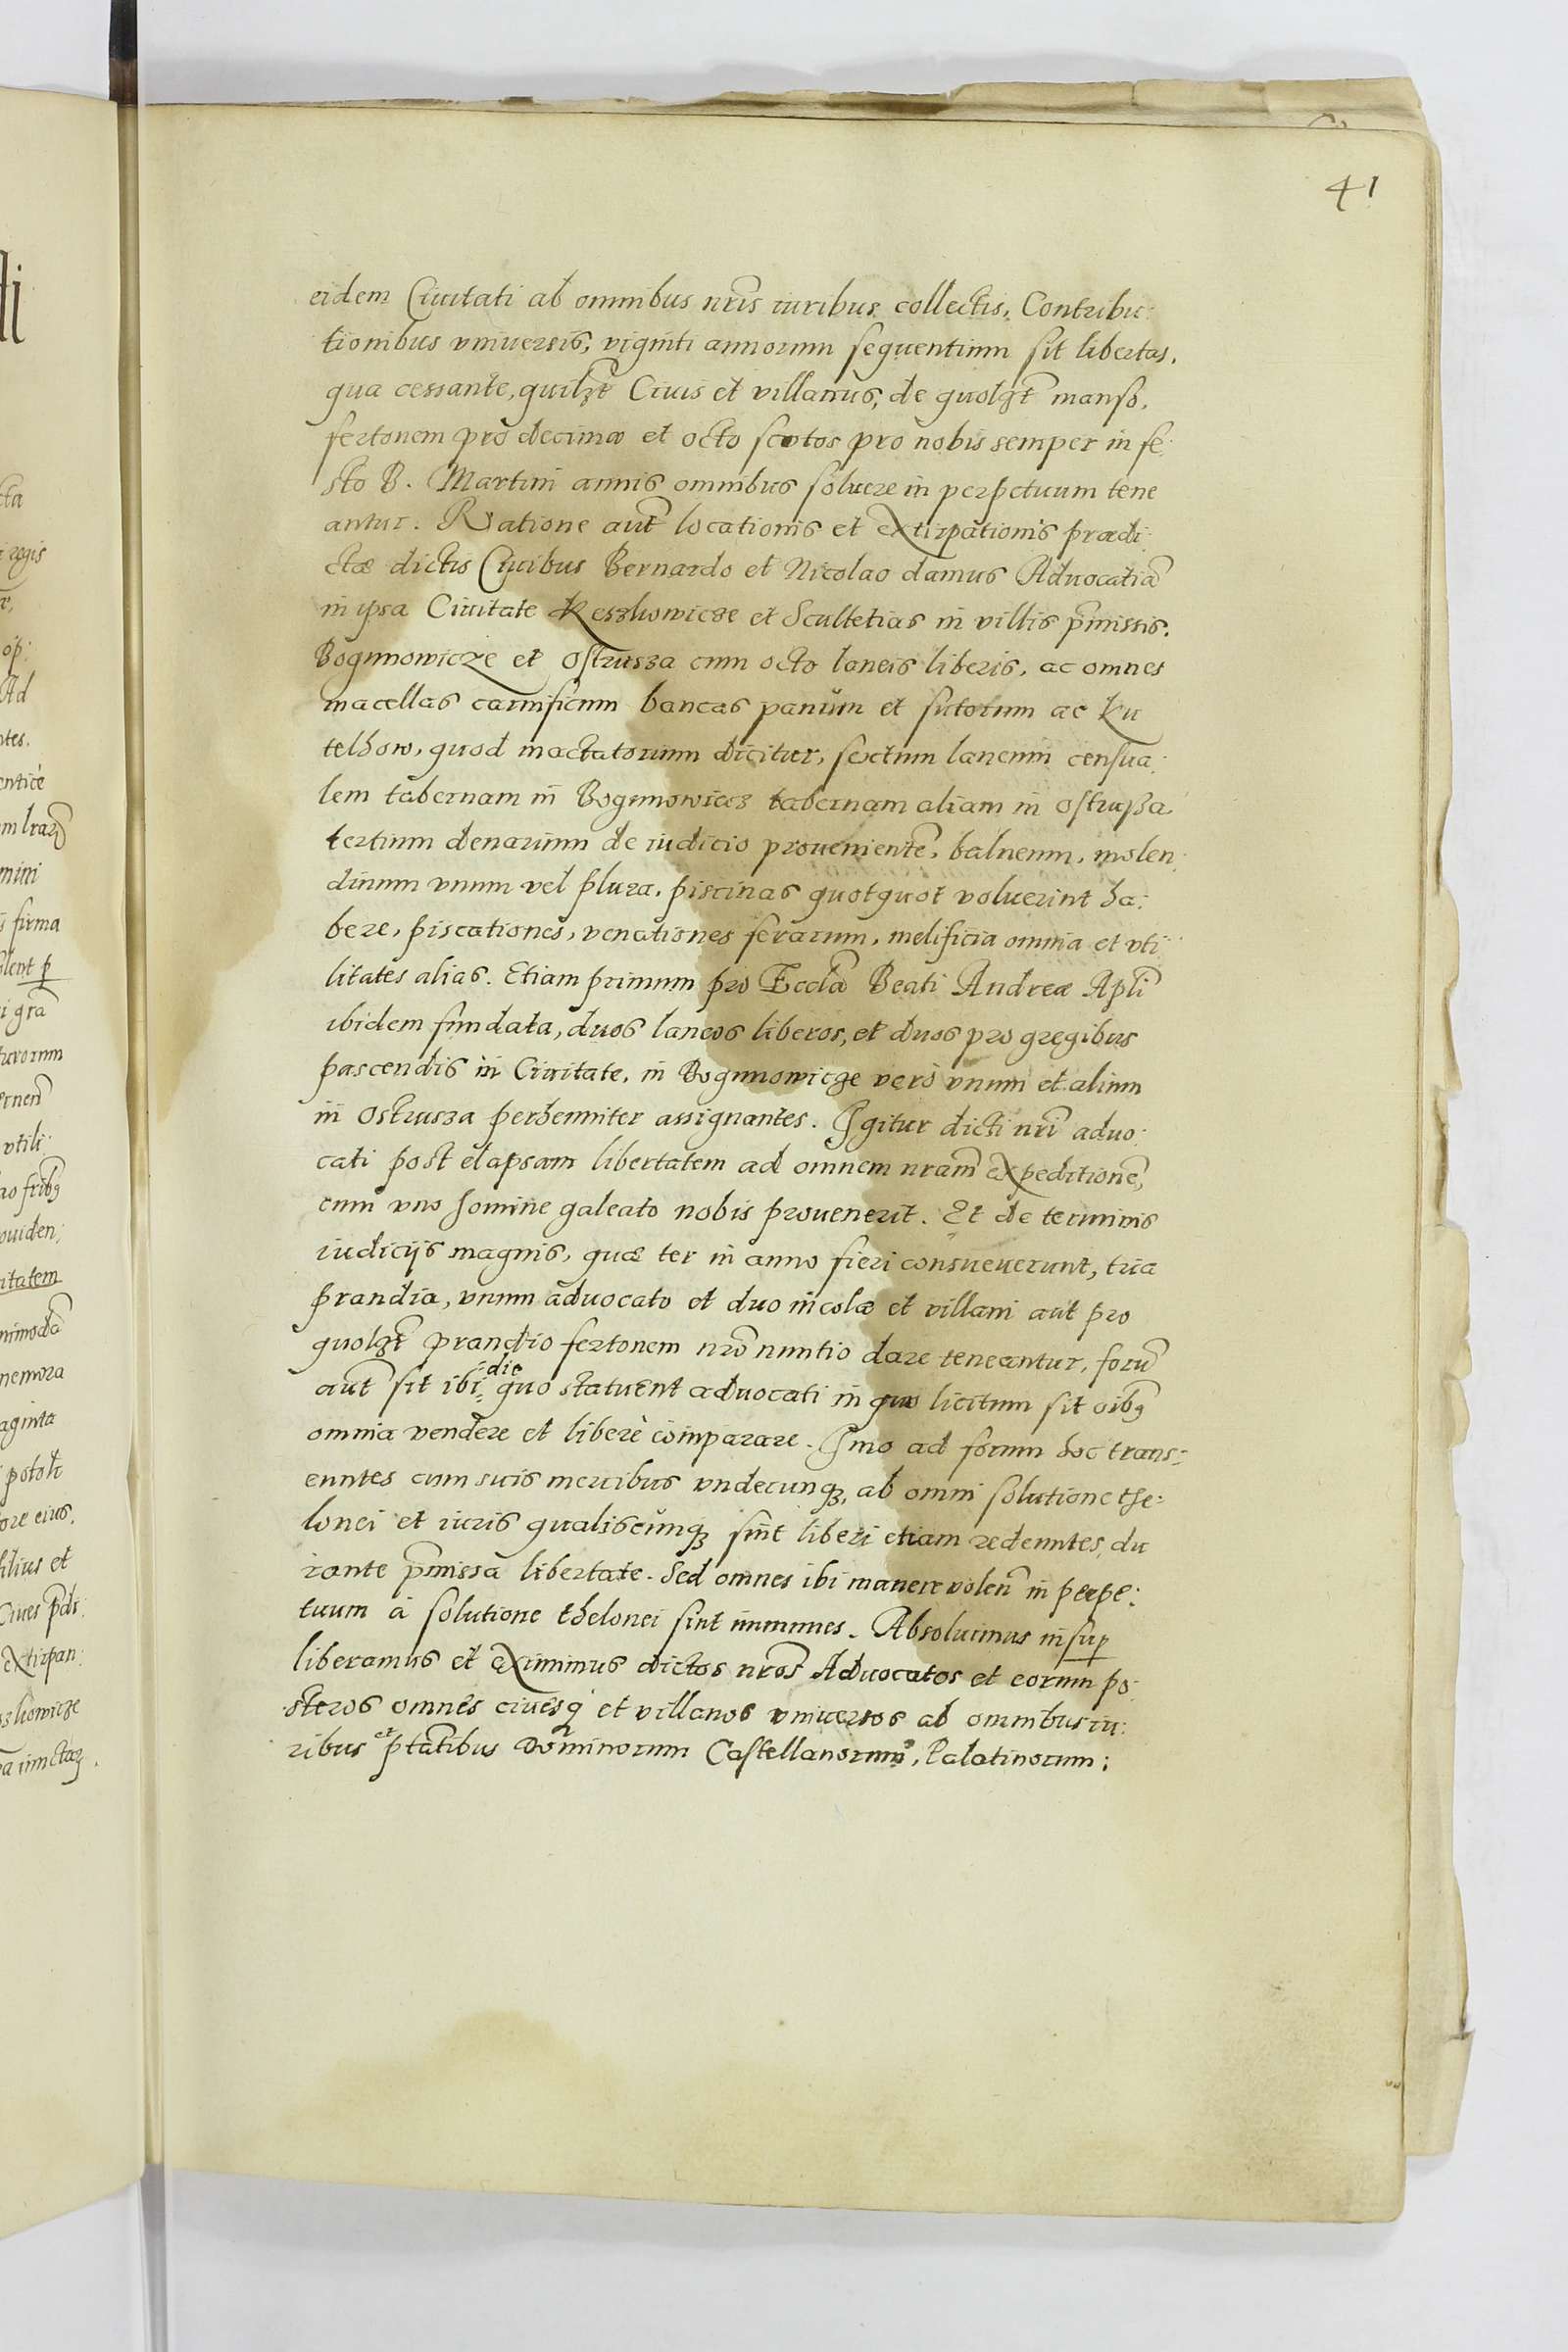 41
eidem Ciuitati ab omnibus nrĩs iuribus collectis, Contribu:
tionibus vniuersis, viginti annorum sequentium sit libertas,
qua cessante, quilꝫt Ciuis et villanus, de quolꝫt manso,
fertonem pro decima et octo scotos pro nobis semper in fe:
sto B. Martini annis omnibus soluere in perpetuum tene
antur. Ratione aut̃ locationis et extirpationis prædi:
ctæ dictis Ciuibus Bernardo et Nicolao damus Aduocatiã
in ipsa Ciuitate Keszhowicze et Scultetias in villis p̃missis.
Bogunowicze et Ostrusza cum octo laneis liberis, ac omnes
macellas carnificum bancas panum et sutorum ac Ku
telhow, quod mactatorium dicitur, sextum laneum censua:
lem tabernam in Bogunowicz tabernam aliam in Ostrußa
tertium denarium de iudicio prouenientẽ, balneum, molen:
dinum vnum vel plura, piscinas quotquot voluerint ha:
bere, piscationes, venationes ferarum, melificia omnia et vti:
litates alias. Etiam primum pro Eccla͂ Beati Andreæ Apl̃i
ibidem fundata, duos laneos liberos, et duos pro gregibus
pascendis in Ciuitate, in Bogunowicze verò vnum et alium
in Ostrusza perhenniter assignantes. Igitur dicti nr̃i aduo:
cati post elapsam libertatem ad omnem nram̃ expeditionẽ,
cum vno homine galeato nobis prouenerit. Et de terminis
iudicijs magnis, quæ ter in anno fieri consueuerunt, tria
prandia, vnum aduocato et duo incolæ et villani aut pro
quolꝫt prandio fertonem nrõ nuntio dare teneantur, forũ
aut̃ sit ibi die quo statuent aduocati in quo licitum sit oibꝫ
omnia vendere et liberè comparare. Imo ad forum hoc trans:
euntes cum suis mercibus vndecunqꝫ, ab omni solutione the:
lonei et iuris qualiscunqꝫ sint liberi etiam redeuntes, du
rante p̃missa libertate. Sed omnes ibi manere volen̄ in perpe:
tuum à solutione thelonei sint immunes. Absoluimus insuꝑ
liberamus et eximimus dictos nros̃ Aduocatos et eorum po:
steros omnes ciuesq́ et villanos vniuersos ab omnibus iu:
ribus et ptatibus Dominorum Castellanorum, Palatinorum: